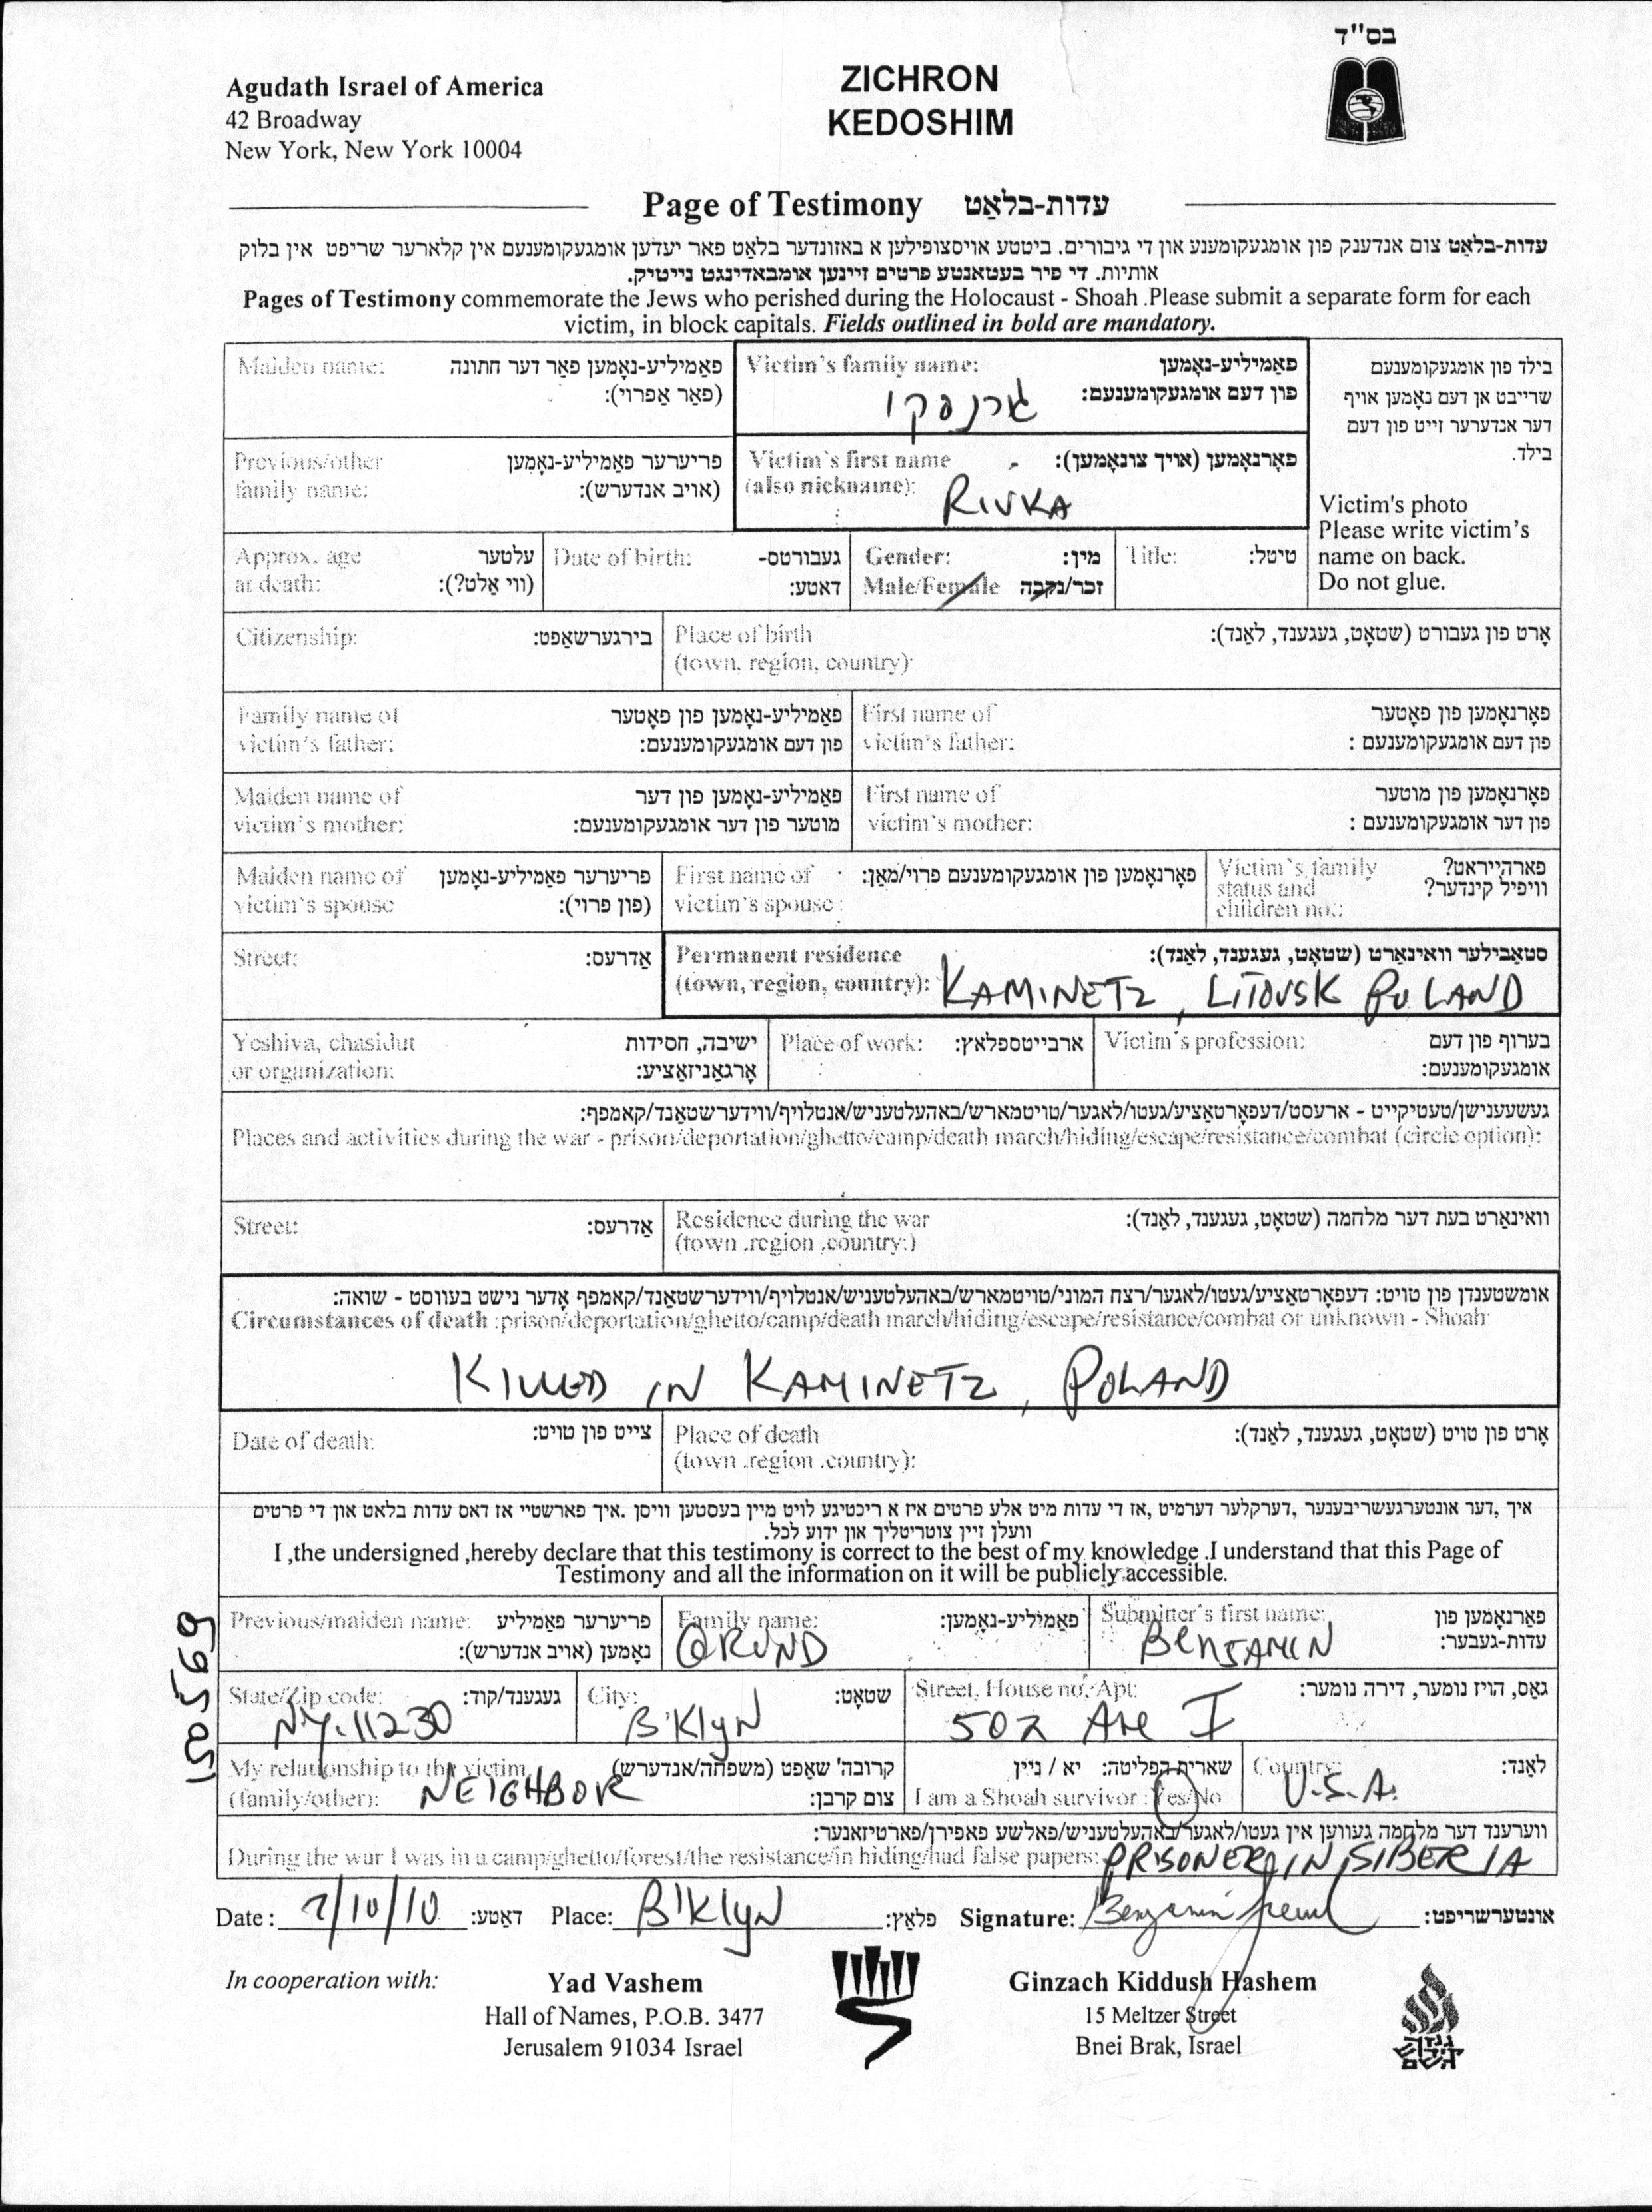 בס"ד
Agudath Israel of America
42 Broadway
New York, New York 10004
ZICHRON
KEDOSHIM
Page of Testimony עדות-בלאַט
עדות-בלאַט צום אנדענק פון אומגעקומענע און די גיבורים. ביטטע אויסצופילען א באזונדער בלאַט פאר יעדען אומגעקומענעם אין קלארער שריפט אין בלוק
אותיות. די פיר בעטאנטע פרטים זיינען אומבאדינגט נייטיק.
Pages of Testimony commemorate the Jews who perished during the Holocaust - Shoah .Please submit a separate form for each
victim, in block capitals. Fields outlined in bold are mandatory.
Maiden name: פאַמיליע-נאָמען פאַר דער חתונה
(פאַר אַפרוי):
Victim's family name: פאַמיליע-נאָמען
פון דעם אומגעקומענעם:
בילד פון אומגעקומענעם
שרייבט אן דעם נאָמען אויף
דער אנדערער זייט פון דעם
בילד.
Victim's photo
Please write victim's
name on back.
Do not glue.
Previous/other פריערער פאַמיליע-נאָמען
family name: (אויב אנדערש):
Victim's first name פאָרנאָמען (אויך צונאָמען):
(also nickname): RIVKA
Approx. age עלטער
at death: (ווי אַלט?):
Date of birth: געבורטס-
דאטע:
Gender: מין:
Male/Female זכר/נקבה
Title: טיטל:
Citizenship: בירגערשאַפט:
Place of birth אָרט פון געבורט (שטאָט, געגענד, לאַנד):
(town, region, country):
Family name of פאַמיליע-נאָמען פון פאָטער
victim's father: פון דעם אומגעקומענעם:
First name of פאָרנאָמען פון פאָטער
victim's father: פון דעם אומגעקומענעם :
Maiden name of פאַמיליע-נאָמען פון דער
victim's mother: מוטער פון דער אומגעקומענעם:
First name of פאָרנאָמען פון מוטער
victim's mother: פון דער אומגעקומענעם :
Maiden name of פריערער פאַמיליע-נאָמען
victim's spouse (פון פרוי):
First name of פאָרנאָמען פון אומגעקומענעם פרוי/מאַן:
victim's spouse :
Victim's family פארהייראט?
status and וויפיל קינדער?
children no.:
Street: אַדרעס:
Permanent residence סטאַבילער וואוינאַרט (שטאָט, געגענד, לאַנד):
(town, region, country): KAMINETZ, LITOVSK POLAND
Yeshiva, chasidut ישיבה, חסידות
or organization: אָרגאַניזאַציע:
Place of work: ארבייטספלאץ:
Victim's profession: בערוף פון דעם
אומגעקומענעם:
געשעענישן/טעטיקייט - ארעסט/דעפאָרטאַציע/געטו/לאגער/טויטמארש/באהעלטעניש/אנטלויף/ווידערשטאַנד/קאמפף:
Places and activities during the war - prison/deportation/ghetto/camp/death march/hiding/escape/resistance/combat (circle option):
Street: אַדרעס:
Residence during the war וואוינאַרט בעת דער מלחמה (שטאָט, געגענד, לאַנד):
(town .region .country:)
אומשטענדן פון טויט: דעפאָרטאַציע/געטו/לאגער/רצח המוני/טויטמארש/באהעלטעניש/אנטלויף/ווידערשטאַנד/קאמפף אָדער נישט בעוווסט - שואה:
Circumstances of death :prison/deportation/ghetto/camp/death march/hiding/escape/resistance/combat or unknown - Shoah
KILLED IN KAMINETZ, POLAND
Date of death: צייט פון טויט:
Place of death אָרט פון טויט (שטאָט, געגענד, לאַנד):
(town .region .country):
איך ,דער אונטערגעשריבענער ,דערקלער דערמיט ,אז די עדות מיט אלע פרטים איז א ריכטיגע לויט מיין בעסטען וויסן .איך פארשטיי אז דאס עדות בלאט און די פרטים
וועלן זיין צוטריטליך און ידוע לכל.
I ,the undersigned ,hereby declare that this testimony is correct to the best of my knowledge .I understand that this Page of
Testimony and all the information on it will be publicly accessible.
Previous/maiden name: פריערער פאַמיליע
נאָמען (אויב אנדערש):
Family name: פאַמיליע-נאָמען:
GRUND
Submitter's first name: פאָרנאָמען פון
עדות-געבער:
BENJAMIN
State/Zip code: געגענד/קוד:
NY. 11230
City: שטאָט:
B'KlyN
Street, House no, Apt: גאַס, הויז נומער, דירה נומער:
502 Ave I
My relationship to the victim קרובה' שאַפט (משפחה/אנדערש)
(family/other): NEIGHBOR צום קרבן:
שארית הפליטה: יא / ניין
I am a Shoah survivor : Yes/No
Country: לאַנד:
U.S.A.
ווערענד דער מלחמה געווען אין געטו/לאגער/באהעלטעניש/פאלשע פאפירן/פארטיזאנער:
During the war I was in a camp/ghetto/forest/the resistance/in hiding/had false papers: PRISONER IN SIBERIA
Date : 7/10/10 דאטע: Place: B'KlyN פלאץ: Signature: Benjamin אונטערשריפט:
In cooperation with:
Yad Vashem
Hall of Names, P.O.B. 3477
Jerusalem 91034 Israel
Ginzach Kiddush Hashem
15 Meltzer Street
Bnei Brak, Israel
גנזך
קידוש
השם